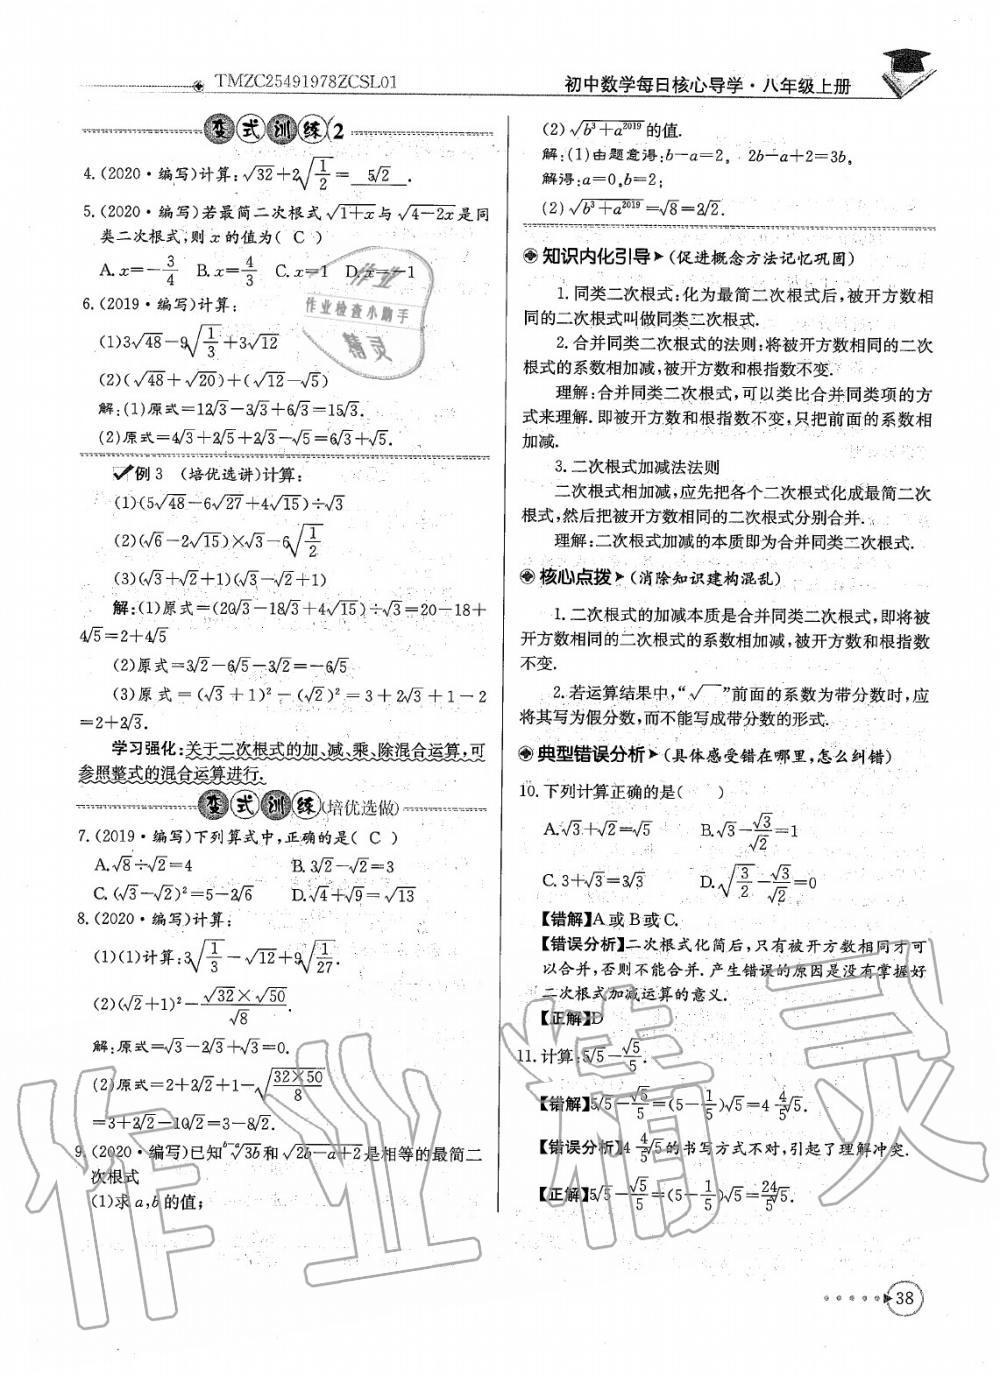 TMZC25491978ZCSL01
初中数学每日核心导学·八年级上册
变式训练2
4.(2020·编写)计算:√32+2√(1/2)= 5√2 .
5.(2020·编写)若最简二次根式√(1+x)与√(4-2x)是同
类二次根式,则 x 的值为( C )
A.x=-3/4 B.x=4/3 C.x=1 D.x=-1
6.(2019·编写)计算:
(1)3√48-9√(1/3)+3√12
(2)(√48+√20)+(√12-√5)
解:(1)原式=12√3-3√3+6√3=15√3.
(2)原式=4√3+2√5+2√3-√5=6√3+√5.
例3 (培优选讲)计算:
(1)(5√48-6√27+4√15)÷√3
(2)(√6-2√15)×√3-6√(1/2)
(3)(√3+√2+1)(√3-√2+1)
解:(1)原式=(20√3-18√3+4√15)÷√3=20-18+
4√5=2+4√5
(2)原式=3√2-6√5-3√2=-6√5
(3)原式=(√3+1)²-(√2)²=3+2√3+1-2
=2+2√3.
学习强化:关于二次根式的加、减、乘、除混合运算,可
参照整式的混合运算进行.
变式训练(培优选做)
7.(2019·编写)下列算式中,正确的是( C )
A.√8÷√2=4 B.3√2-√2=3
C.(√3-√2)²=5-2√6 D.√4+√9=√13
8.(2020·编写)计算:
(1)(1)计算:3√(1/3)-√12+9√(1/27).
(2)(√2+1)²-(√32×√50)/√8.
解:原式=√3-2√3+√3=0.
(2)原式=2+2√2+1-√((32×50)/8)
=3+2√2-10√2=3-8√2.
9.(2020·编写)已知 ᵇ⁻ᵃ√3b和√(2b-a+2)是相等的最简二
次根式
(1)求 a,b 的值;
(2)√(b³+a²⁰¹⁹)的值.
解:(1)由题意得:b-a=2, 2b-a+2=3b,
解得:a=0,b=2;
(2)√(b³+a²⁰¹⁹)=√8=2√2.
知识内化引导(促进概念方法记忆巩固)
1.同类二次根式:化为最简二次根式后,被开方数相
同的二次根式叫做同类二次根式.
2.合并同类二次根式的法则:将被开方数相同的二次
根式的系数相加减,被开方数和根指数不变.
理解:合并同类二次根式,可以类比合并同类项的方
式来理解.即被开方数和根指数不变,只把前面的系数相
加减.
3.二次根式加减法法则
二次根式相加减,应先把各个二次根式化成最简二次
根式,然后把被开方数相同的二次根式分别合并.
理解:二次根式加减的本质即为合并同类二次根式.
核心点拨(消除知识建构混乱)
1.二次根式的加减本质是合并同类二次根式,即将被
开方数相同的二次根式的系数相加减,被开方数和根指数
不变.
2.若运算结果中,“√ ”前面的系数为带分数时,应
将其写为假分数,而不能写成带分数的形式.
典型错误分析(具体感受错在哪里,怎么纠错)
10.下列计算正确的是( )
A.√3+√2=√5 B.√3-√3/√2=1
C.3+√3=3√3 D.√(3/2)-√3/√2=0
【错解】A或B或C.
【错误分析】二次根式化简后,只有被开方数相同才可
以合并,否则不能合并.产生错误的原因是没有掌握好
二次根式加减运算的意义.
【正解】D
11.计算:5√5-√5/5.
【错解】5√5-√5/5=(5-1/5)√5=4 4/5√5.
【错误分析】4 4/5√5的书写方式不对,引起了理解冲突.
【正解】5√5-√5/5=(5-1/5)√5=24/5√5.
38
作业
作业检查小助手
精灵
作业精灵